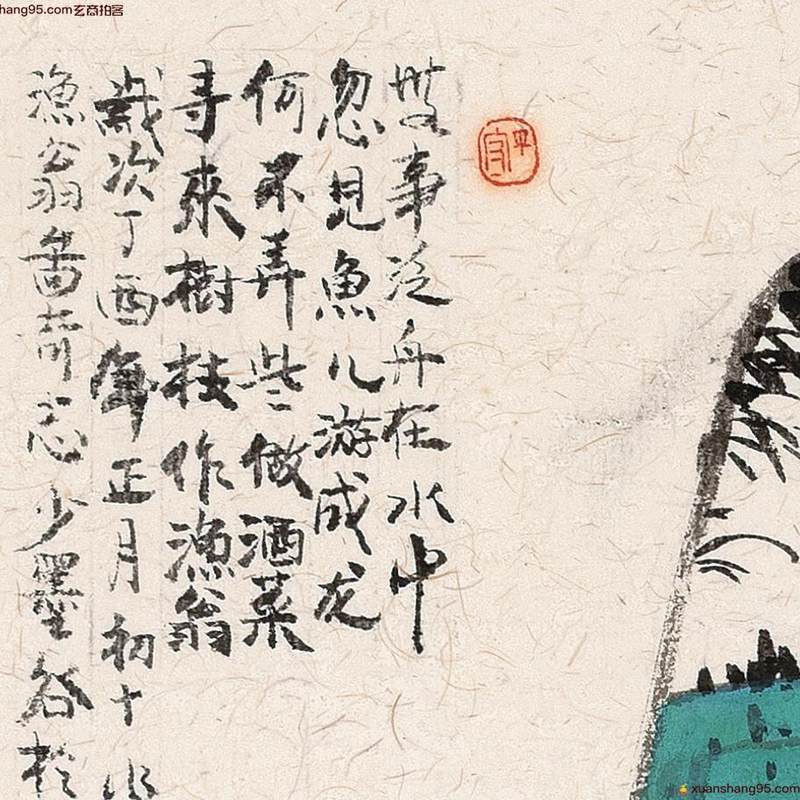 hang95.com玄商拍客
無事泛舟在水中
忽見魚儿游成龙
何不弄些做酒菜
寻來樹枝作漁翁
歲次丁酉年正月初十 水
漁翁啚 志 少墨 於
xuanshang95.com